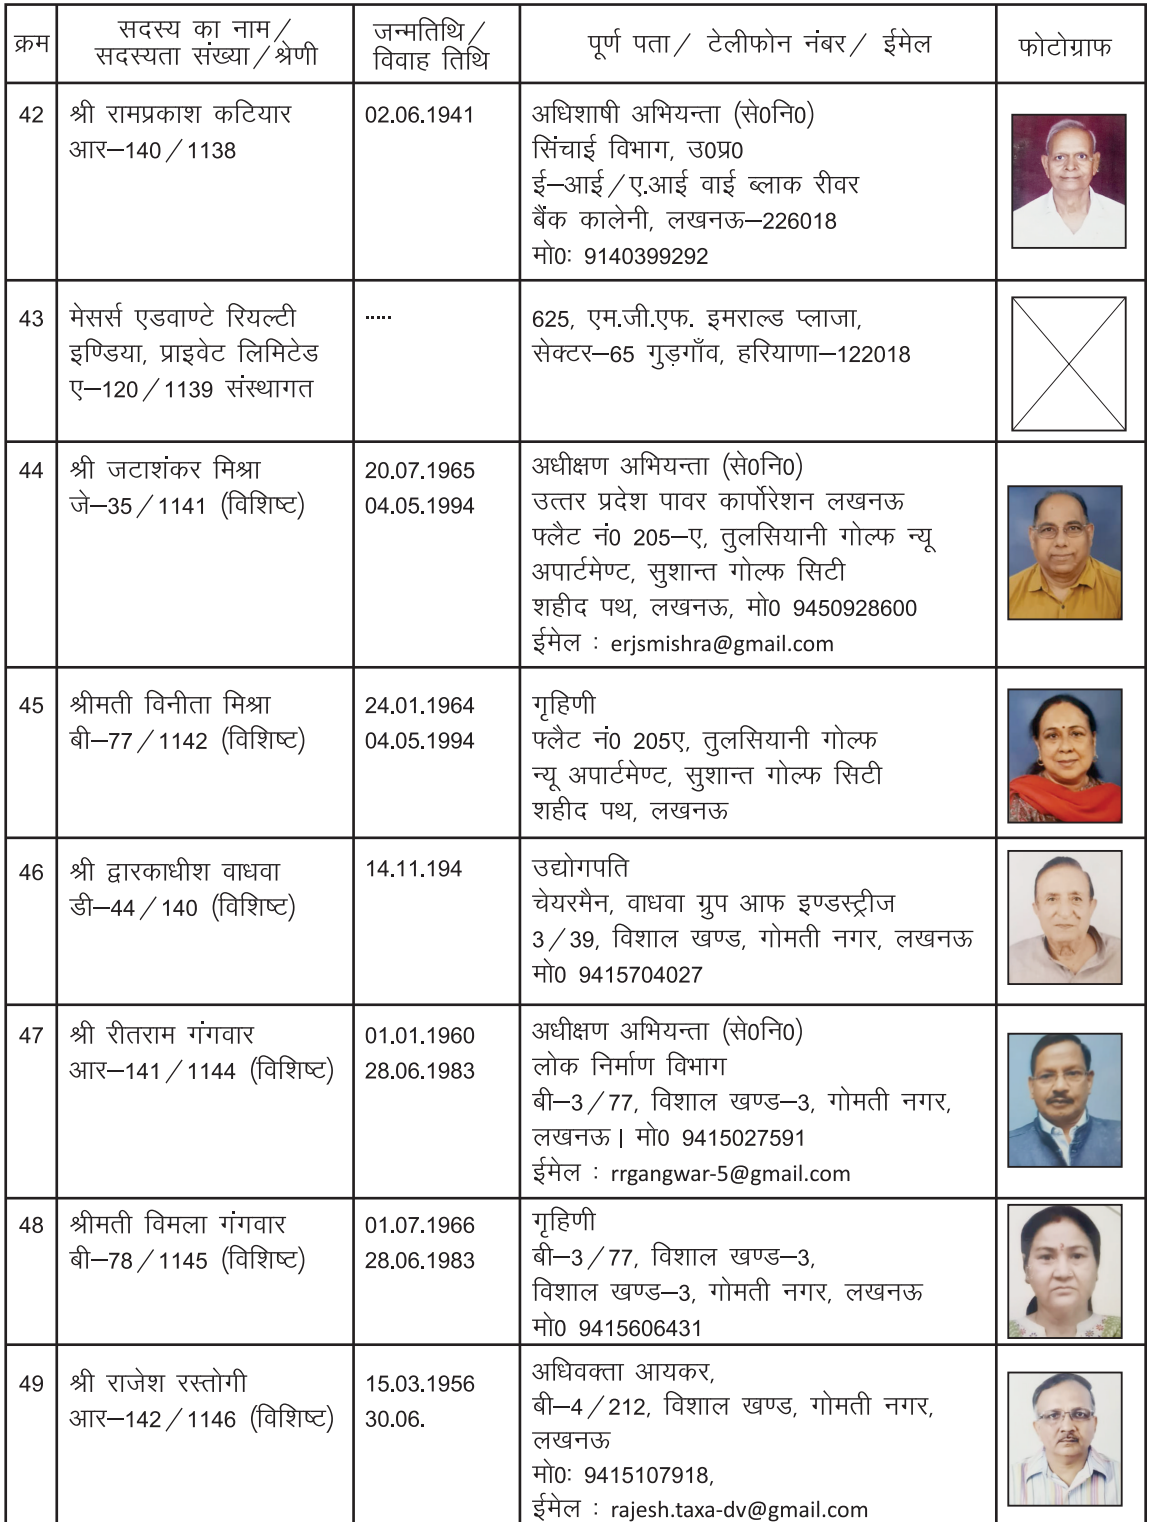 क्रम
सदस्य का नाम/
सदस्यता संख्या/श्रेणी
जन्मतिथि/
विवाह तिथि
पूर्ण पता/ टेलीफोन नंबर/ ईमेल
फोटोग्राफ
42
श्री रामप्रकाश कटियार
आर–140/1138
02.06.1941
अधिशाषी अभियन्ता (से0नि0)
सिंचाई विभाग, उ0प्र0
ई–आई/ए.आई वाई ब्लाक रीवर
बैंक कालेनी, लखनऊ–226018
मो0: 9140399292
43
मेसर्स एडवाण्टे रियल्टी
इण्डिया, प्राइवेट लिमिटेड
ए–120/1139 संस्थागत
.....
625, एम.जी.एफ. इमराल्ड प्लाजा,
सेक्टर–65 गुड़गाँव, हरियाणा–122018
44
श्री जटाशंकर मिश्रा
जे–35/1141 (विशिष्ट)
20.07.1965
04.05.1994
अधीक्षण अभियन्ता (से0नि0)
उत्तर प्रदेश पावर कार्पोरेशन लखनऊ
फ्लैट नं0 205–ए, तुलसियानी गोल्फ न्यू
अपार्टमेण्ट, सुशान्त गोल्फ सिटी
शहीद पथ, लखनऊ, मो0 9450928600
ईमेल : erjsmishra@gmail.com
45
श्रीमती विनीता मिश्रा
बी–77/1142 (विशिष्ट)
24.01.1964
04.05.1994
गृहिणी
फ्लैट नं0 205ए, तुलसियानी गोल्फ
न्यू अपार्टमेण्ट, सुशान्त गोल्फ सिटी
शहीद पथ, लखनऊ
46
श्री द्वारकाधीश वाधवा
डी–44/140 (विशिष्ट)
14.11.194
उद्योगपति
चेयरमैन, वाधवा ग्रुप आफ इण्डस्ट्रीज
3/39, विशाल खण्ड, गोमती नगर, लखनऊ
मो0 9415704027
47
श्री रीतराम गंगवार
आर–141/1144 (विशिष्ट)
01.01.1960
28.06.1983
अधीक्षण अभियन्ता (से0नि0)
लोक निर्माण विभाग
बी–3/77, विशाल खण्ड–3, गोमती नगर,
लखनऊ। मो0 9415027591
ईमेल : rrgangwar-5@gmail.com
48
श्रीमती विमला गंगवार
बी–78/1145 (विशिष्ट)
01.07.1966
28.06.1983
गृहिणी
बी–3/77, विशाल खण्ड–3,
विशाल खण्ड–3, गोमती नगर, लखनऊ
मो0 9415606431
49
श्री राजेश रस्तोगी
आर–142/1146 (विशिष्ट)
15.03.1956
30.06.
अधिवक्ता आयकर,
बी–4/212, विशाल खण्ड, गोमती नगर,
लखनऊ
मो0: 9415107918,
ईमेल : rajesh.taxa-dv@gmail.com